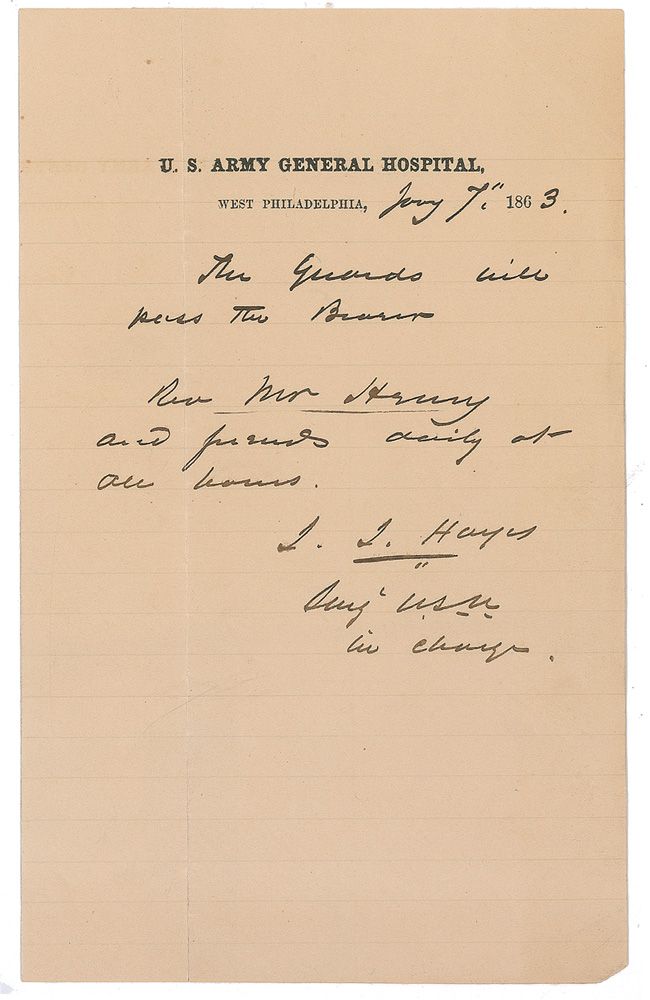 U. S. ARMY GENERAL HOSPITAL,
WEST PHILADELPHIA, Jany 7" 1863.
The Guards will
pass the Bearer
Rev Mr Henry
and friends daily at
all hours.
I. I. Hayes
Surg USV
in charge.